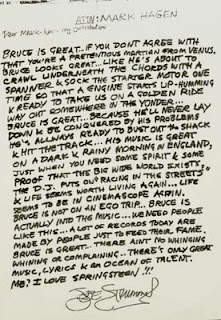 ATTN: MARK HAGEN
Dear Mark - Here's my contribution
BRUCE IS GREAT.. IF YOU DON'T AGREE WITH
THAT YOU'RE A PRETENTIOUS MARTIAN FROM VENUS.
BRUCE LOOKS GREAT.. LIKE HE'S ABOUT TO
CRAWL UNDERNEATH THE CHORDS WITH A
SPANNER & SOCK THE STARTER MOTOR ONE
TIME SO THAT A ENGINE STARTS UP - HUMMING
& READY TO TAKE US ON A GOLDEN RIDE
WAY OUT SOMEWHERE IN THE YONDER...
BRUCE IS GREAT.. BECAUSE HE'LL NEVER LAY
DOWN & BE CONQUERED BY HIS PROBLEMS
HE'S ALWAYS READY TO BUST OUT THE SHACK
& HIT THE TRACK... HIS MUSIC IS GREAT
ON A DARK & RAINY MORNING IN ENGLAND,
JUST WHEN YOU NEED SOME SPIRIT & SOME
PROOF THAT THE BIG WIDE WORLD EXISTS,
THE D.J. PUTS ON "RACING IN THE STREETS"
& LIFE SEEMS WORTH LIVING AGAIN... LIFE
SEEMS TO BE IN CINEMASCOPE AGAIN.
BRUCE IS NOT ON AN EGO TRIP.. BRUCE IS
ACTUALLY INTO THE MUSIC... WE NEED PEOPLE
LIKE THIS... A LOT OF RECORDS TODAY ARE
MADE BY PEOPLE JUST TO FEED THEIR FAME.
BRUCE IS GREAT.. THERE AINT NO WHINGING
WHINING OR COMPLAINING.. THERE'S ONLY GREAT
MUSIC, LYRICS & AN OCEAN OF TALENT.
ME? I LOVE SPRINGSTEEN !!!
Joe Strummer